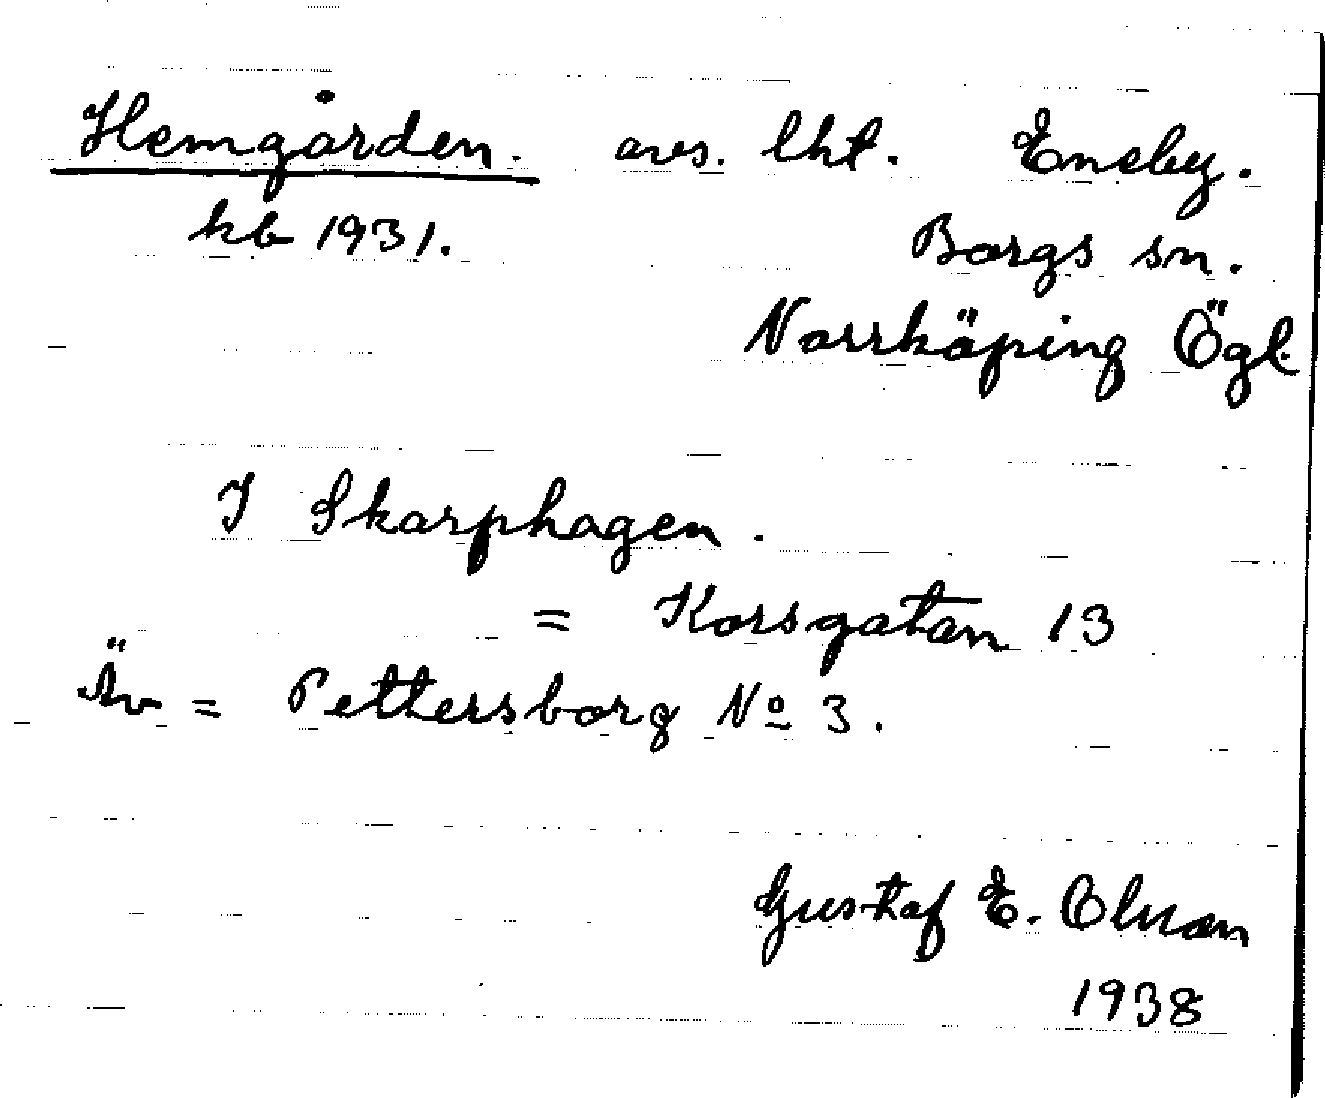 Hemgården. avs. lht. Eneby.
kb 1931. Borgs sn.
Norrköping Ögl.
I Skarphagen.
= Korsgatan 13
Äv = Pettersborg No 3.
Gustaf E. Olsson
1938